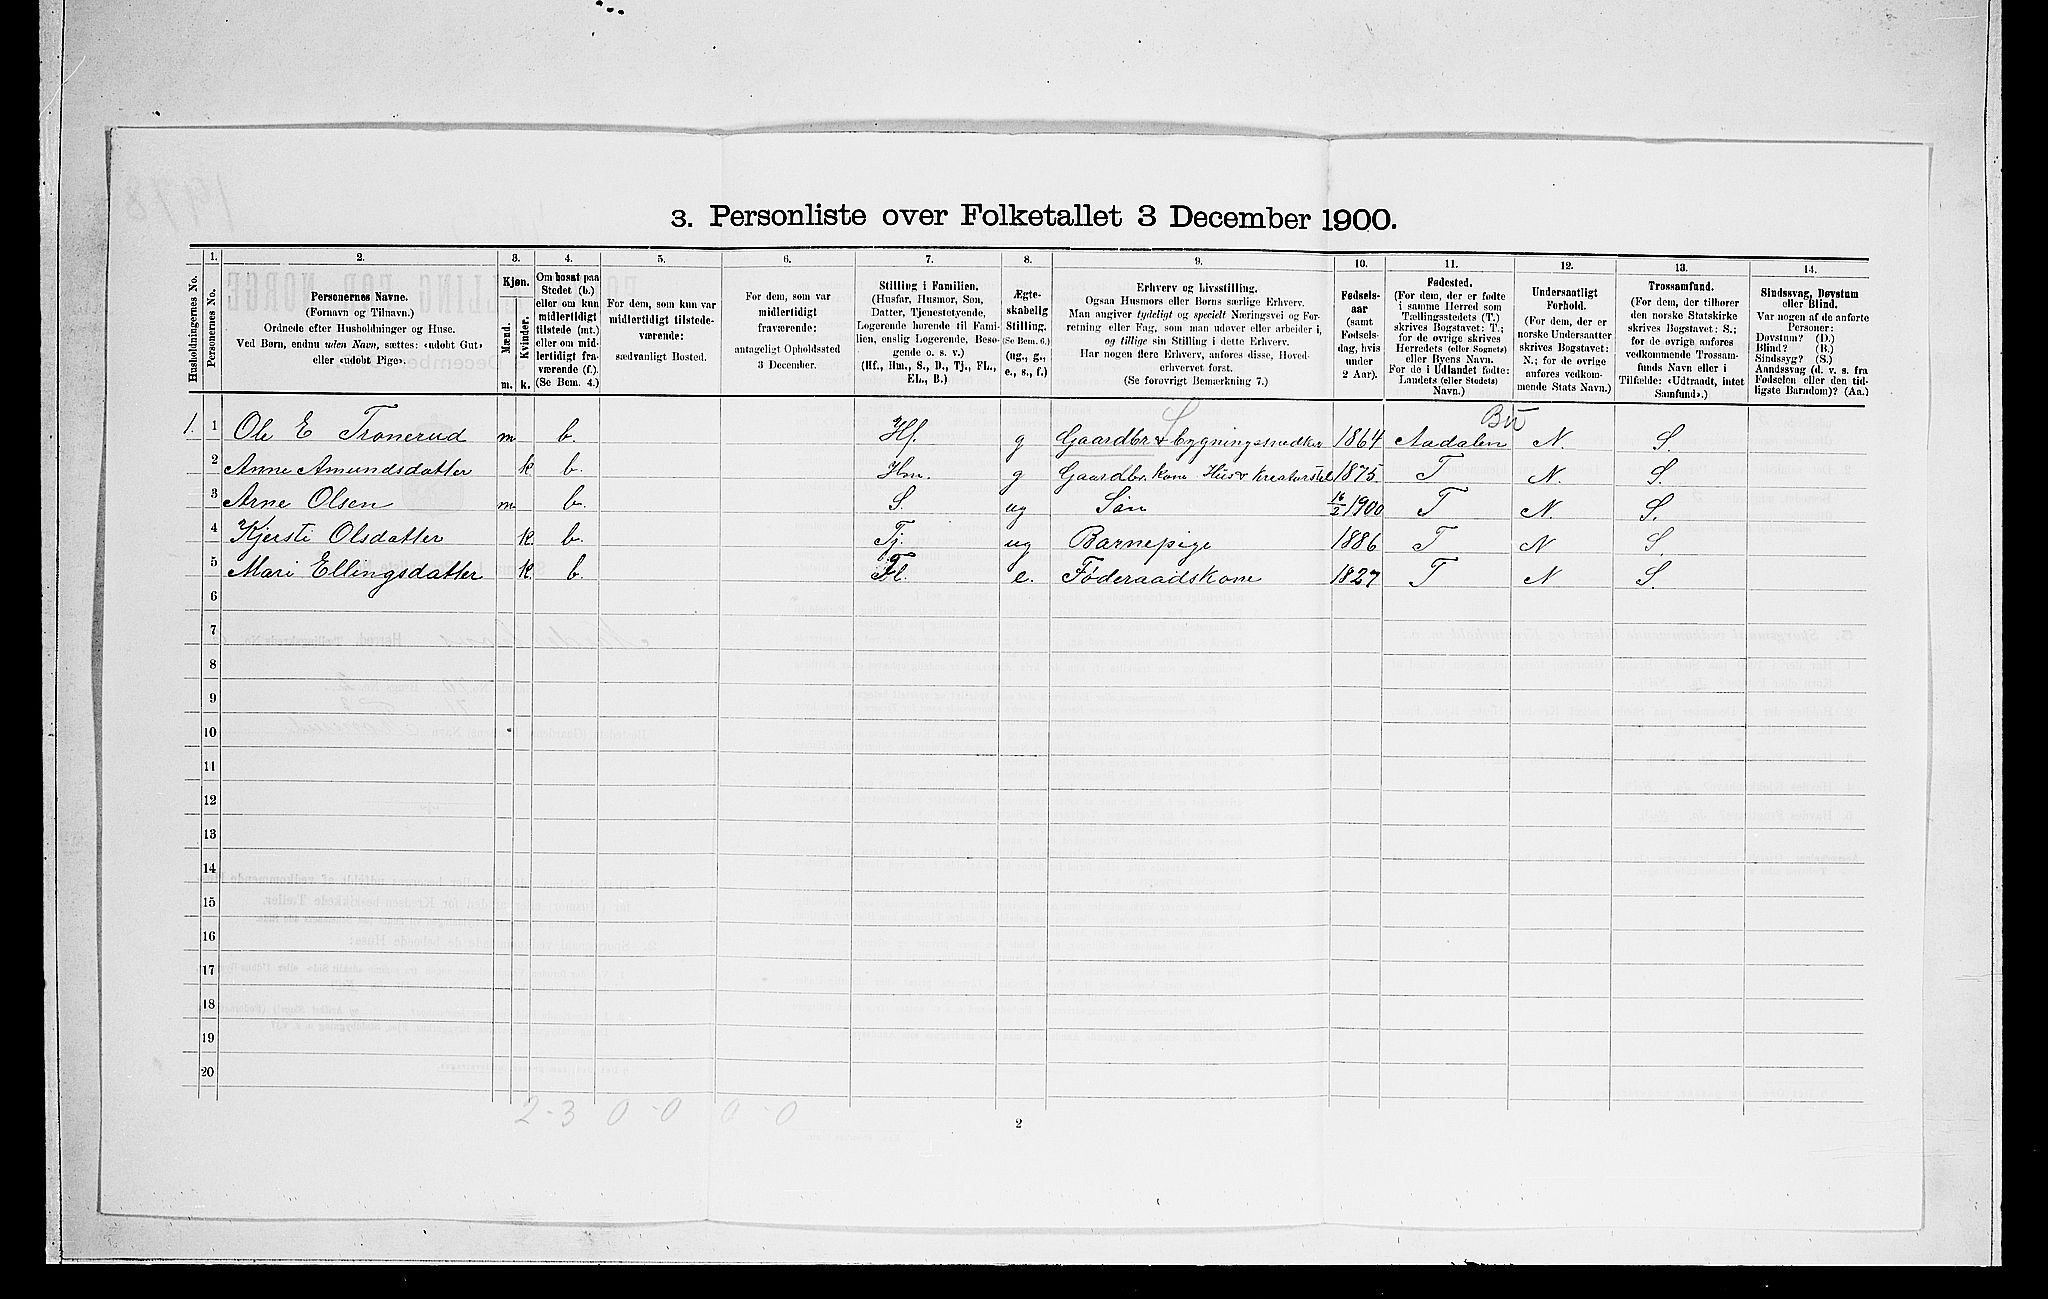 3. Personliste over Folketallet 3 December 1900.
Husholdningernes No.
1.
Personernes No.
2.
Personernes Navne.
(Fornavn og Tilnavn.)
Ordnede efter Husholdninger og Huse.
Ved Børn, endnu uden Navn, sættes: «udøbt Gut»
eller «udøbt Pige».
3.
Kjøn.
Mænd.
Kvinder.
m. k.
4.
Om bosat paa
Stedet (b.)
eller om kun
midlertidigt
tilstede (mt.)
eller om mid-
lertidigt fra-
værende (f.).
(Se Bem. 4.)
5.
For dem, som kun var
midlertidigt tilstede-
værende:
sædvanligt Bosted.
6.
For dem, som var
midlertidigt
fraværende:
antageligt Opholdssted
3 December.
7.
Stilling i Familien.
(Husfar, Husmor, Søn,
Datter, Tjenestetyende,
Logerende hørende til Fami-
lien, enslig Logerende, Besø-
gende o. s. v.)
(Hf., Hm., S., D., Tj., FL.,
EL., B.)
8.
Ægte-
skabelig
Stilling.
(Se Bem. 6.)
(ug., g.,
e., s., f.)
9.
Erhverv og Livsstilling.
Ogsaa Husmors eller Børns særlige Erhverv.
Man angiver tydeligt og specielt Næringsvei og For-
retning eller Fag, som man udøver eller arbeider i,
og tillige sin Stilling i dette Erhverv.
Har nogen flere Erhverv, anføres disse, Hoved-
erhvervet først.
(Se forøvrigt Bemærkning 7.)
10.
Fødsels-
aar
(samt
Fødsels-
dag, hvis
under
2 Aar).
11.
Fødested.
(For dem, der er fødte
i samme Herred som
Tællingsstedets (T.)
skrives Bogstavet: T.;
for de øvrige skrives
Herredets (eller Sognets)
eller Byens Navn.
For de i Udlandet fødte:
Landets (eller Stedets)
Navn.)
12.
Undersaatligt
Forhold.
(For dem, der er
norske Undersaatter
skrives Bogstavet:
N.; for de øvrige
anføres vedkom-
mende Stats Navn.)
13.
Trossamfund.
(For dem, der tilhører
den norske Statskirke
skrives Bogstavet: S.;
for de øvrige anføres
vedkommende Trossam-
funds Navn eller i
Tilfælde: «Udtraadt, intet
Samfund».)
14.
Sindssvag, Døvstum
eller Blind.
Var nogen af de anførte
Personer:
Døvstum? (D.)
Blind? (B.)
Sindssyg? (S.)
Aandssvag (d. v. s. fra
Fødselen eller den tid-
ligste Barndom)? (Aa.)
1. 1 Ole E Tronerud m b. Hf. g Gaardbr & bygningssnedker 1864 Aadalen N. S.
2 Anne Amundsdatter k b. Hm. g Gaardbr. kone Hus & kreaturstel 1875 T N. S.
3 Arne Olsen m b. S. ug Søn 16/2 1900 T N. S.
4 Kjersti Olsdatter k. b. Tj. ug Barnepige 1886 T N S.
5 Mari Ellingsdatter k. b. Fl. e. Føderaadskone 1827 T N S.
6
7
8
9
10
11
12
13
14
15
16
17
18
19
20
2-3 0-0 0-0
2